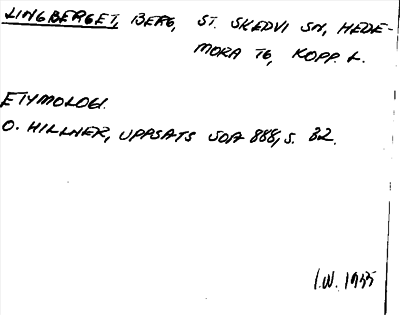 LINGBERGET, BERG, ST. SKEDVI SN, HEDE-
MORA TG, KOPP. L.
ETYMOLOGI.
O. HILLNER, UPPSATS SOA 888, S. 32.
I.W. 1955